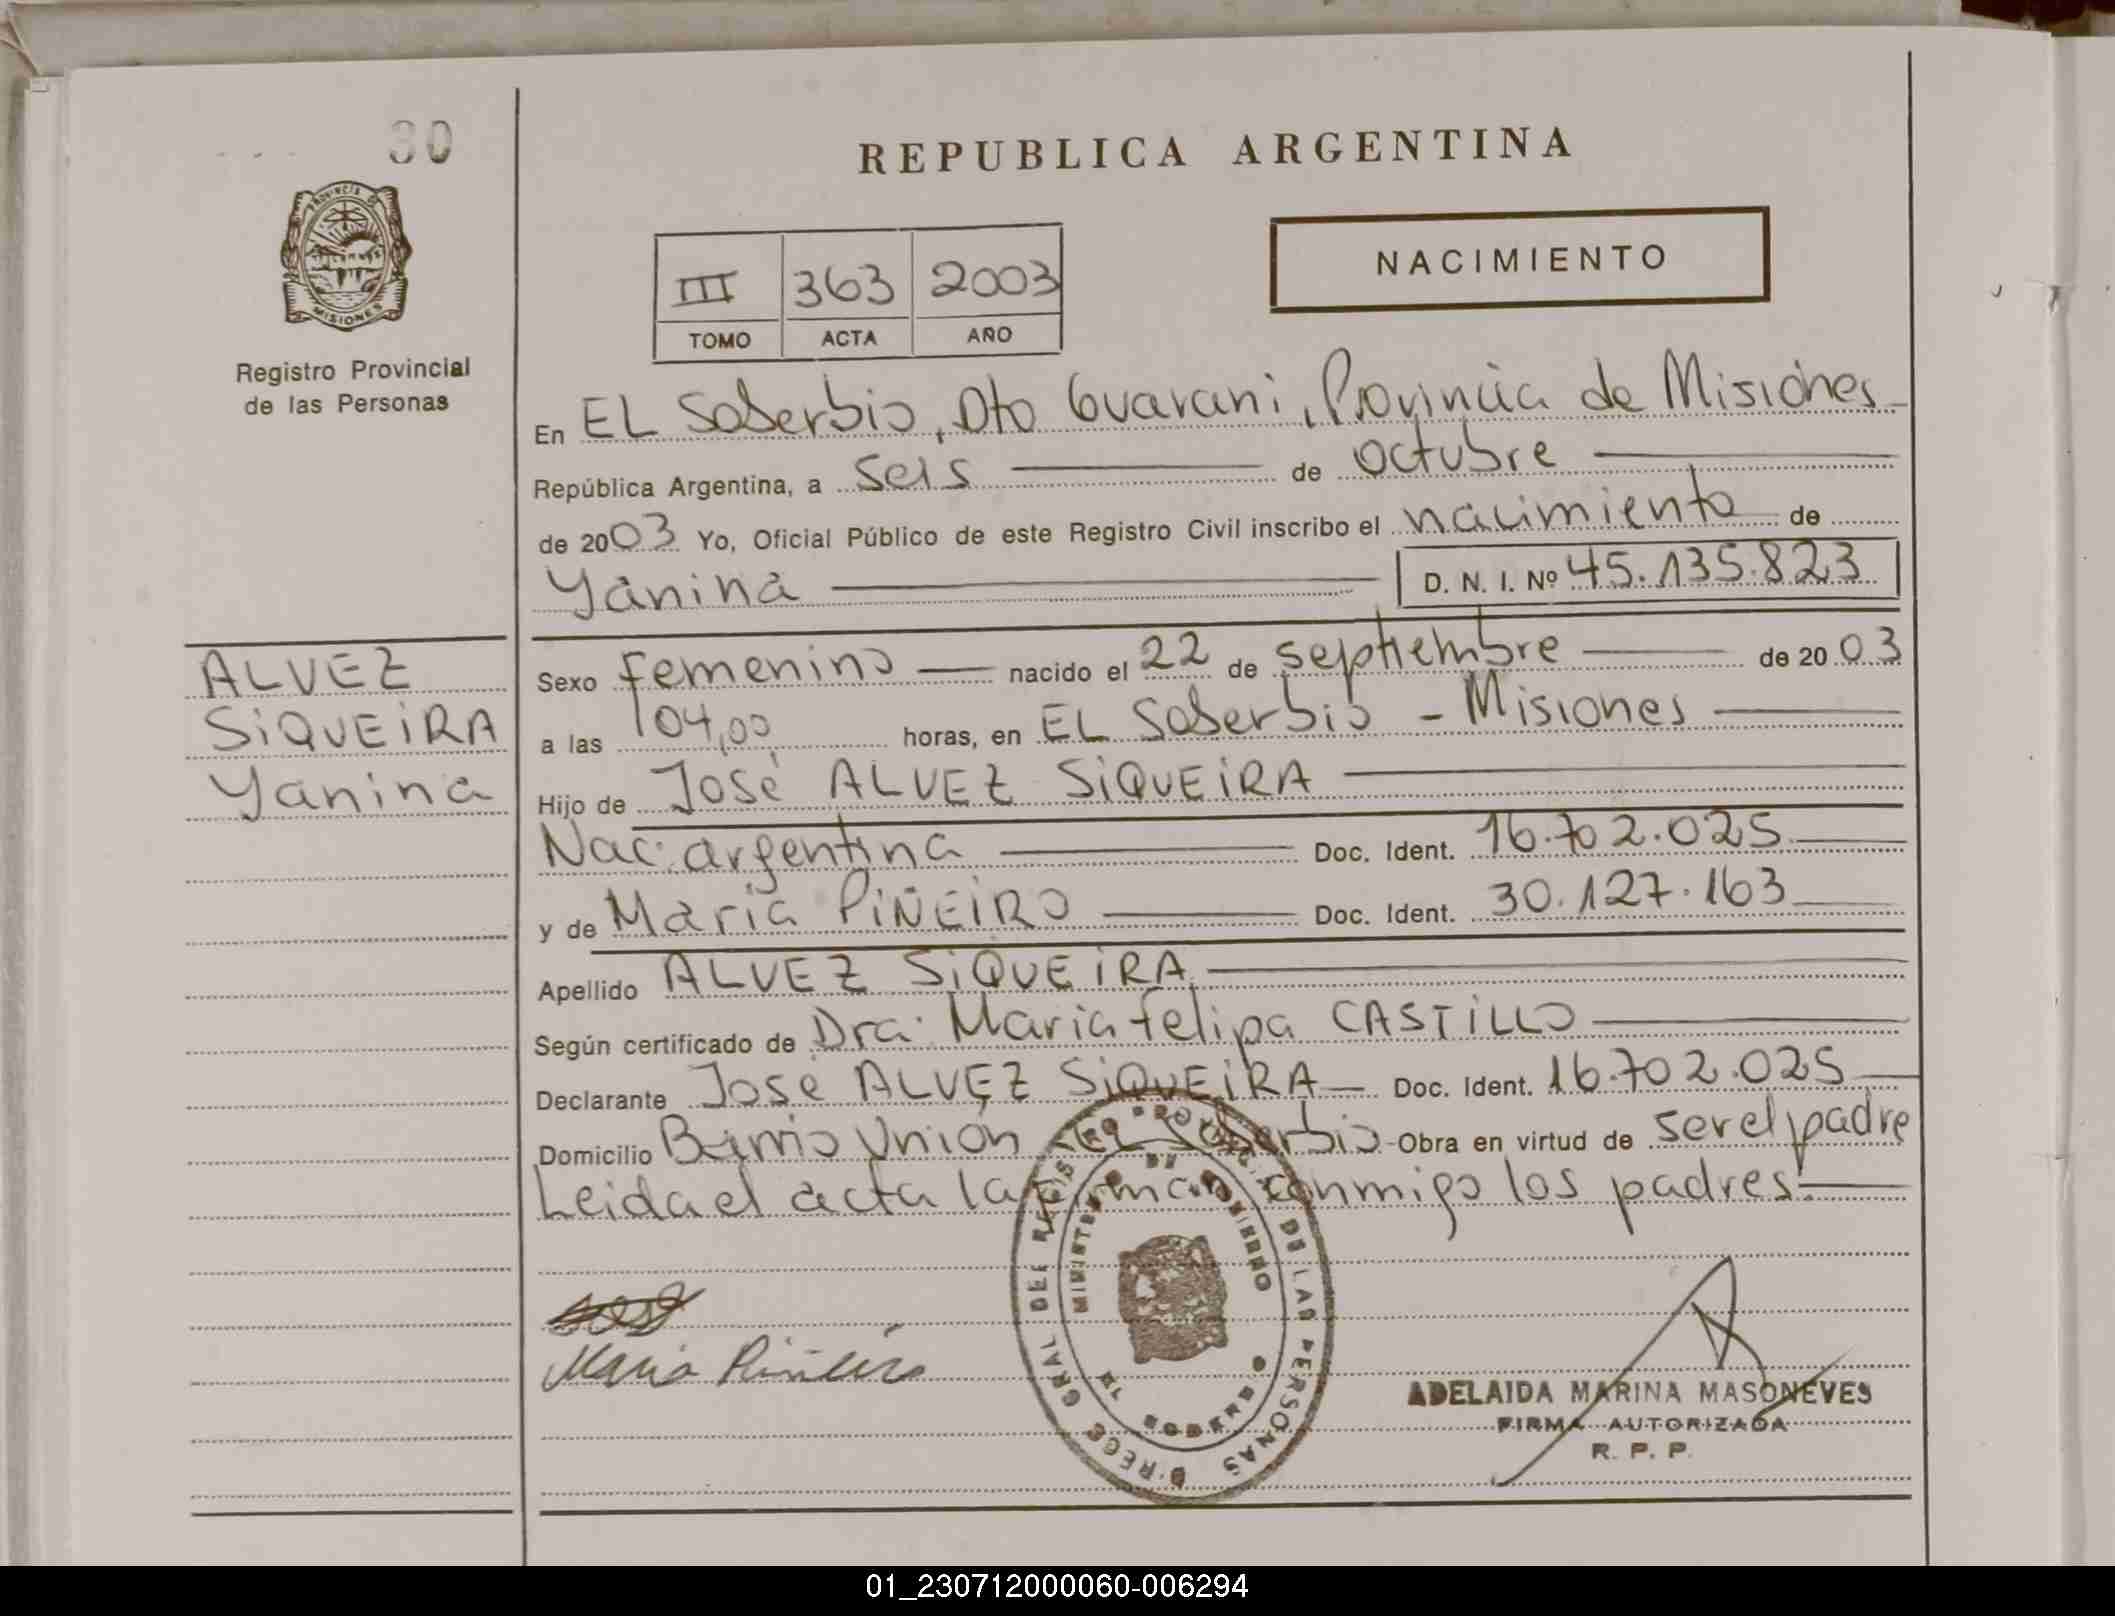 30
PROVINCIA DE
MISIONES
Registro Provincial
de las Personas
REPUBLICA ARGENTINA
III 363 2003
TOMO ACTA AÑO
NACIMIENTO
En EL Soberbio, Dto Guarani, Provincia de Misiones
República Argentina, a seis de octubre
de 2003 Yo, Oficial Público de este Registro Civil inscribo el nacimiento de
Yanina D. N. I. Nº 45.135.823
ALVEZ
SiQUEiRA
Yanina
Sexo femenino nacido el 22 de septiembre de 2003
a las 04,00 horas, en EL Soberbio - Misiones
Hijo de José ALVEZ SiQUEiRA
Nac: argentina Doc. Ident. 16.702.025
y de Maria PiÑEiRO Doc. Ident. 30.127.163
Apellido ALVEZ SiQUEiRA
Según certificado de Dra: Maria Felipa CASTiLLO
Declarante José ALVEZ SiQUEiRA Doc. Ident. 16.702.025
Domicilio Barrio Unión EL Soberbio Obra en virtud de ser el padre
Leida el acta la firman conmigo los padres.
Maria Piñeiro
ADELAIDA MARINA MASONEVES
FIRMA AUTORIZADA
R. P. P.
01_230712000060-006294